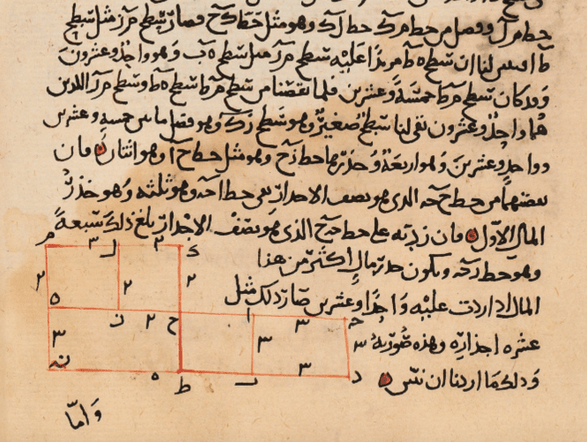 خط م ل وفضل من خط م ك خط ل ك وهو مثل خط ك ح فصار سطح م ر مثل سطح
ط ا فتبين لنا ان سطح ه ط مزيدا عليه سطح م ر مثل سطح ه ب وهو واحد وعشرون
وقد كان سطح م ط خمسة وعشرين فلما نقصنا من سطح م ط سطح ه ط وسطح م ر اللذين
هما واحد وعشرون بقي لنا سطح صغير وهو سطح ر ك وهو فضل ما بين خمسة وعشرين
وواحد وعشرين وهو اربعة وجذرها خط ر ح وهو مثل خط ح ا وهو اثنان فان
نقصتهما من خط ح ج الذي هو نصف الاجذار بقي خط ا ج وهو ثلثة وهو جذر
المال الاول فان زدته على خط ج ح الذي هو نصف الاجذار بلغ ذلك سبعة
وهو خط ر ج ويكون جذر مال اكثر من هذا
المال اذا زدت عليه واحدا وعشرين صار ذلك مثل
عشرة اجذاره وهذه صورته
وذلك ما اردنا ان نبين
واما